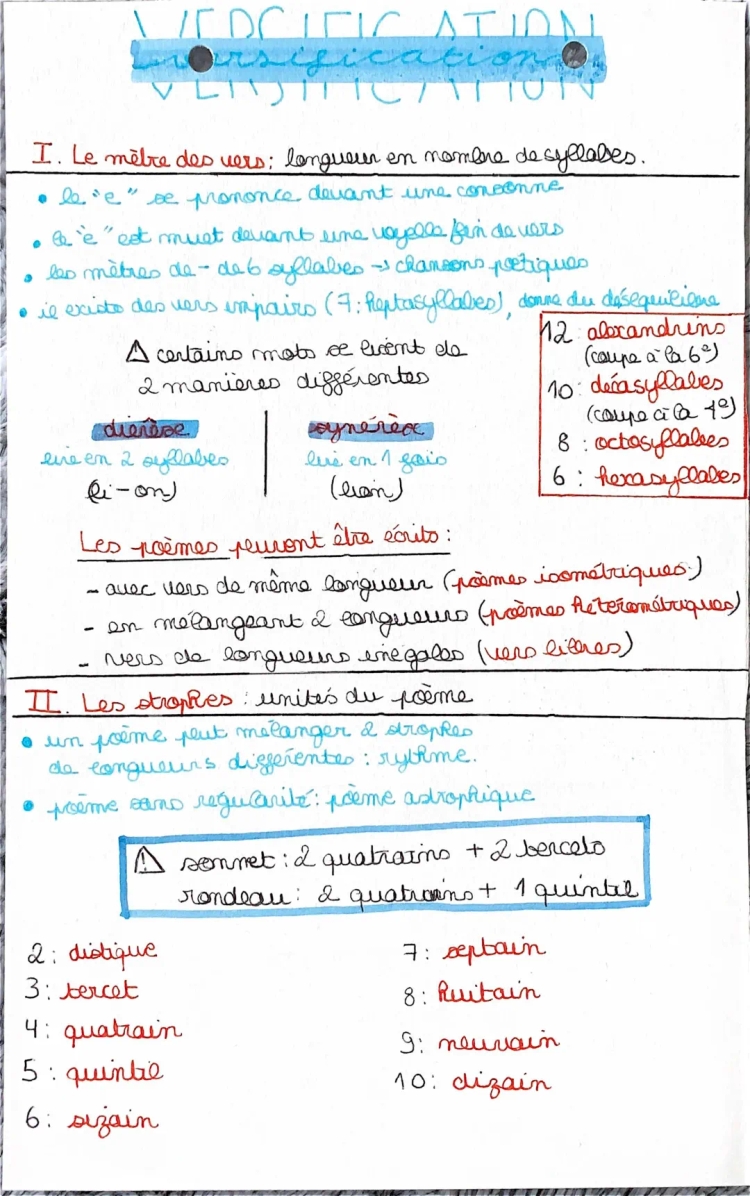 VERSIFICATION
versification
I. Le mètre des vers : longueur en nombre de syllabes.
• le "e" se prononce devant une consonne
• le "e" est muet devant une voyelle / fin de vers
• les mètres de - de 6 syllabes → chansons poétiques
• il existe des vers impairs (7 : heptasyllabes), donne du déséquilibre
⚠ certains mots se lisent de
2 manières différentes
diérèse
lire en 2 syllabes
(li-on)
synérèse
lu en 1 fois
(lion)
12 alexandrins
(coupe à la 6e)
10 : décasyllabes
(coupe à la 4e)
8 : octosyllabes
6 : hexasyllabes
Les poèmes peuvent être écrits :
- avec vers de même longueur (poèmes isométriques)
- en mélangeant 2 longueurs (poèmes hétérométriques)
- vers de longueurs inégales (vers libres)
II. Les strophes : unités du poème
• un poème peut mélanger 2 strophes
de longueurs différentes : rythme.
• poème sans régularité : poème astrophique
⚠ sonnet : 2 quatrains + 2 tercets
rondeau : 2 quatrains + 1 quintil
2 : distique
3 : tercet
4 : quatrain
5 : quintil
6 : sizain
7 : septain
8 : huitain
9 : neuvain
10 : dizain